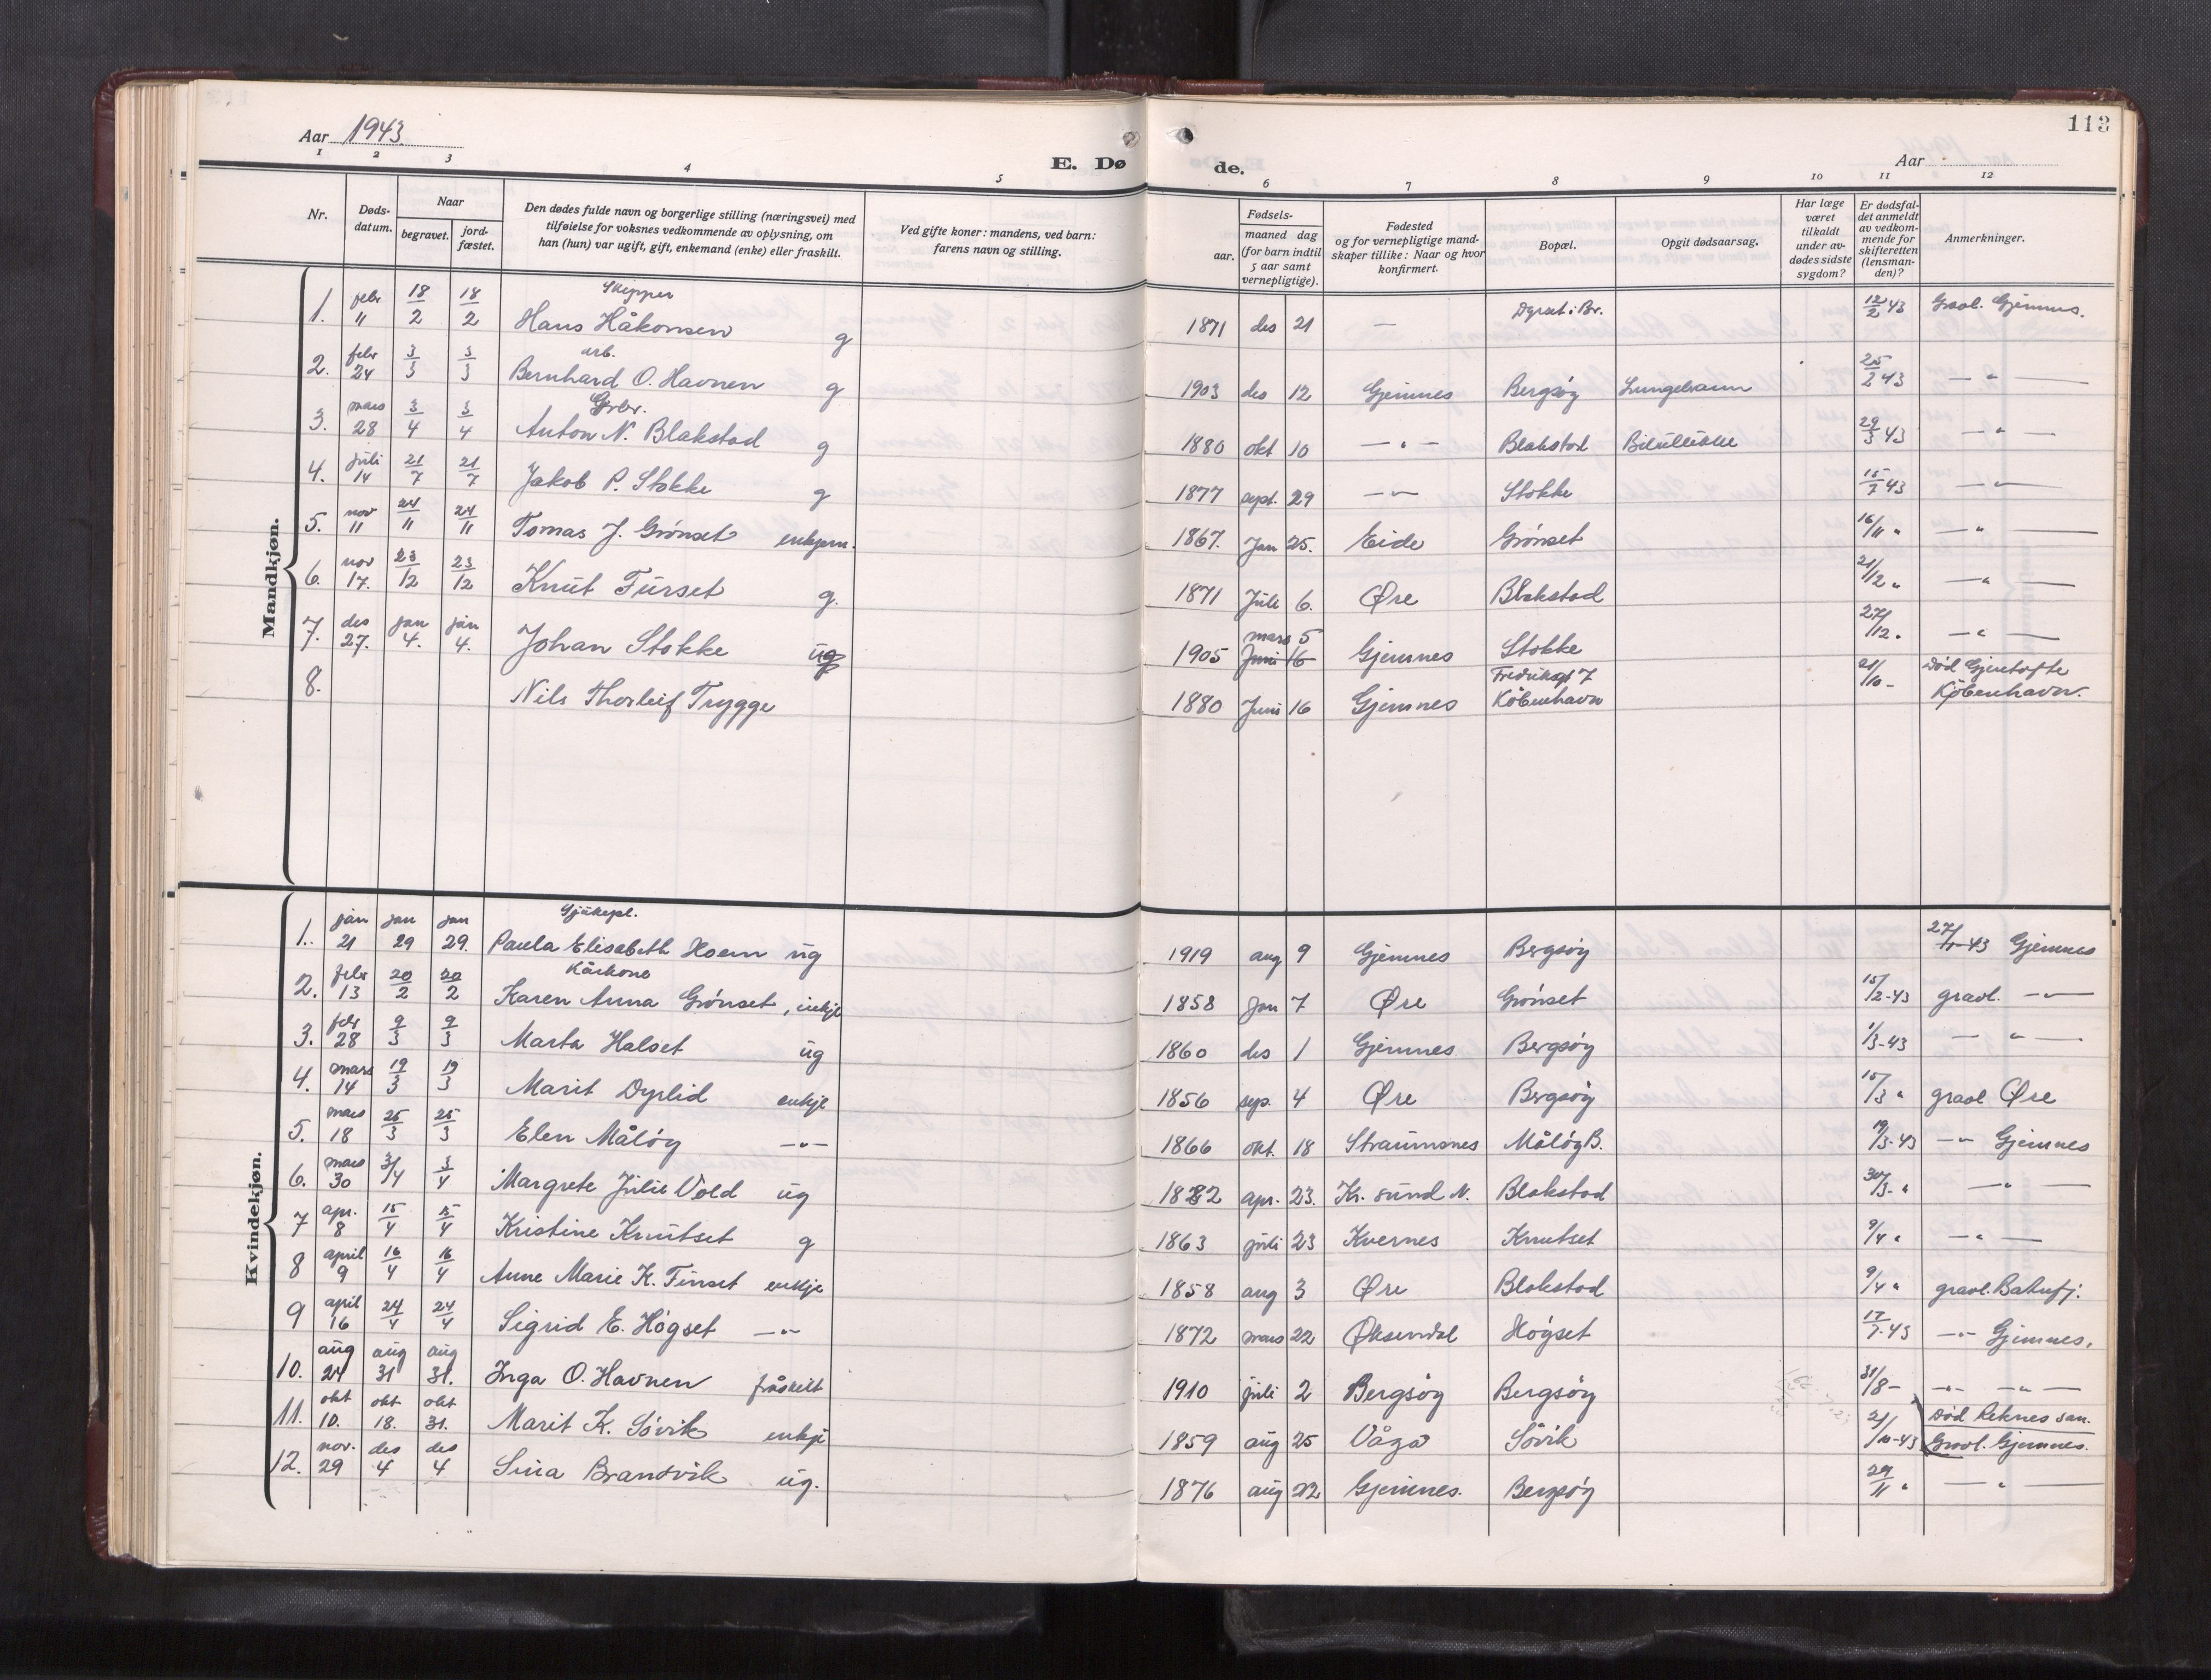 Aar 1943
E. Dø de.
113
Aar
1 2 3 4 5 6 7 8 9 10 11 12
Nr.
Døds-
datum.
Naar
begravet.
jord-
fæstet.
Den dødes fulde navn og borgerlige stilling (næringsvei) med
tilføielse for voksnes vedkommende av oplysning, om
han (hun) var ugift, gift, enkemand (enke) eller fraskilt.
Ved gifte koner: mandens, ved barn:
farens navn og stilling.
Fødsels-
aar.
maaned dag
(for barn indtil
5 aar samt
vernepligtige).
Fødested
og for vernepligtige mand-
skaper tillike: Naar og hvor
konfirmert.
Bopæl.
Opgit dødsaarsag.
Har læge
været
tilkaldt
under av-
dødes sidste
sygdom?
Er dødsfal-
det anmeldt
av vedkom-
mende for
skifteretten
(lensman-
den)?
Anmerkninger.
Mandkjøn.
Skipper
1. febr 11 18/2 18/2 Hans Håkonsen g 1871 des 21 — 12/2 43 Gravl. Gjemnes.
arb.
2. febr 24 3/3 3/3 Bernhard O. Havnen g 1903 des 12 Gjemnes Bergsøy 25/2 43 — " —
Gbr.
3. mars 28 3/4 3/4 Anton N. Blakstad g 1880 okt 10 — " — Blakstad Bilulukke 29/3 43 — " —
4. juli 14 21/7 21/7 Jakob P. Stokke g 1877 sept. 29 — " — Stokke 15/7 43 — " —
5. nov 11 24/11 24/11 Tomas J. Grønset enkjem. 1867. Jan 25. Eide Grønset 16/11 " — " —
6. nov 17. 23/12 23/12 Knut Furset g. 1871 Juli 6. Øre Blakstad 21/12 " — " —
7. des 27. jan 4. jan 4. Johan Stokke ug 1905 mars 5 Juni 16 Gjemnes Stokke 27/12 " — " —
8. Nils Thorleif Trygge 1880 Juni 16 Gjemnes Fredriksgt 7 København 21/10 - Død Gjentofte
København.
Kvindekjøn.
Sjukepl.
1. jan 21 jan 29 jan 29. Paula Elisabeth Hoem ug 1919 aug 9 Gjemnes Bergsøy 27/1-43 Gjemnes
Kårkone
2. febr 13 20/2 20/2 Karen Anna Grønset, enkje 1858 Jan 7 Øre Grønset 15/2-43 gravl. — " —
3. febr 28 9/3 9/3 Marta Halset ug 1860 des 1 Gjemnes Bergsøy 1/3-43 — " —
4. mars 14 19/3 19/3 Marit Dyrlid enkje 1856 sep. 4 Øre Bergsøy 15/3 " gravl Øre
5. mars 18 25/3 25/3 Elen Måløy — " — 1866 okt. 18 Straumsnes Måløy B. 19/3-43 — " Gjemnes
6. mars 30 3/4 3/4 Margrete Julie Vold ug 1882 apr. 23. Kr. sund N. Blakstad 30/3- " — " —
7 apr. 8 15/4 15/4 Kristine Knutset g 1863 juli 23 Kvernes Knutset 9/4 " — " —
8 april 9 16/4 16/4 Anne Marie K. Finset enkje 1858 aug 3 Øre Blakstad 9/4 " gravl. Batnfj.
9 april 16 24/4 24/4 Sigrid E. Høgset — " — 1872 mars 22 Øksendal Høgset 17/7-43 — " — Gjemnes.
10. aug 24 aug 31 aug 31. Inga O. Havnen fråskilt 1910 juli 2 Bergsøy Bergsøy 31/8 - — " — — " —
11. okt 10. okt 18. okt 31. Marit K. Søvik enkje 1859 aug 25 Vågå Søvik 21/10-43 Død Reknes san.
Gravl. Gjemnes.
12. nov. 29 des 4 des 4 Sina Brandvik ug. 1876 aug 22 Gjemnes. Bergsøy 29/11 " — " —